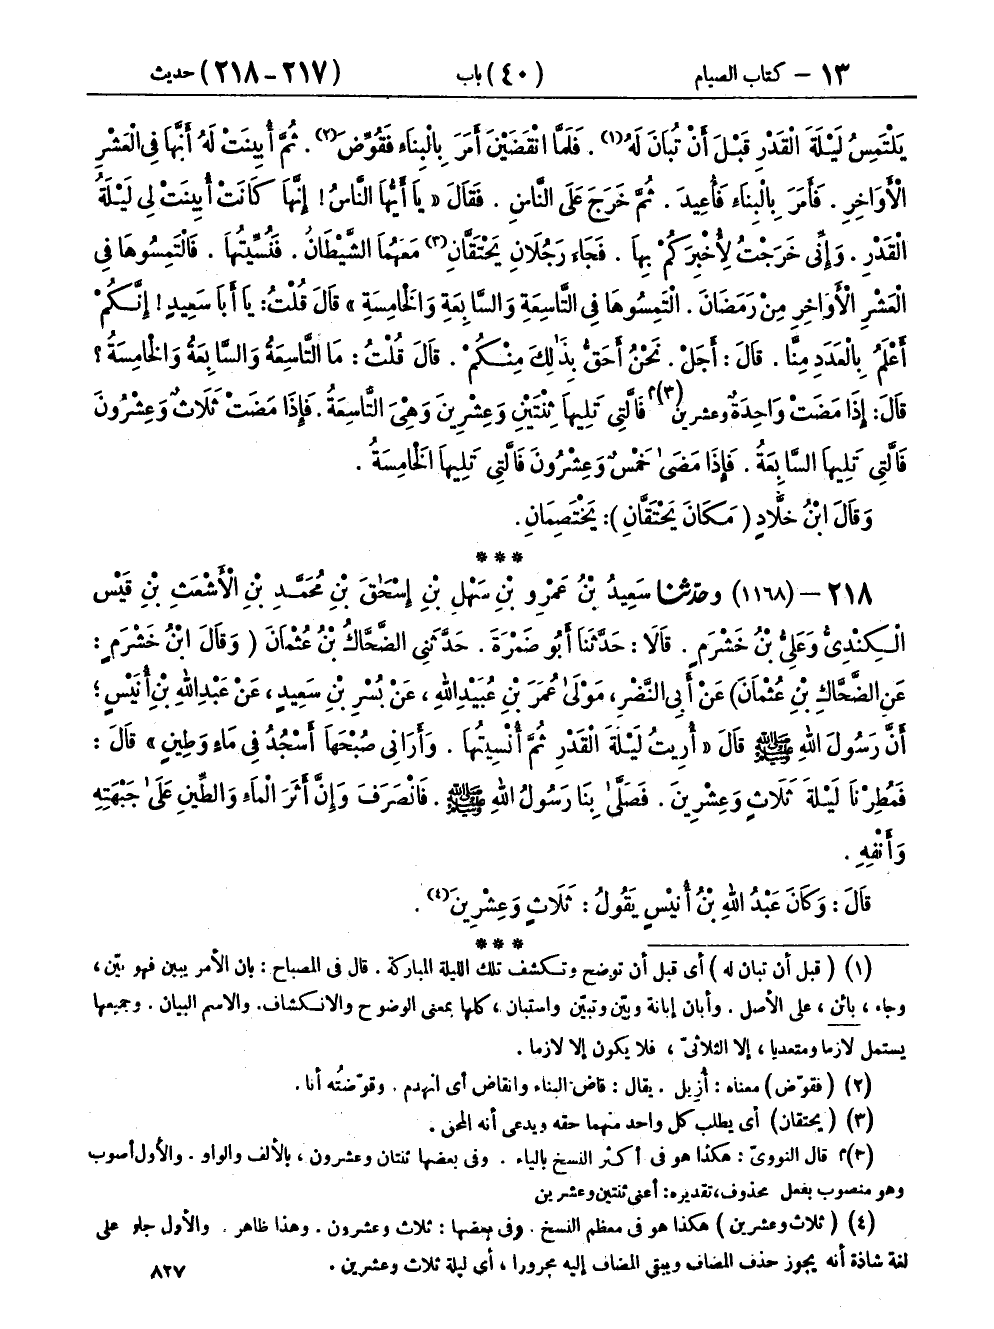 ١٣ – كتاب الصيام (٤٠) باب (٢١٧-٢١٨) حديث
يَلْتَمِسُ لَيْلَةَ الْقَدْرِ قَبْلَ أَنْ تُبَانَ لَهُ(١) . فَلَمَّا انْقَضَيْنَ أَمَرَ بِالْبِنَاءِ فَقُوِّضَ(٢) . ثُمَّ أُبِينَتْ لَهُ أَنَّهَا فِي الْعَشْرِ
الْأَوَاخِرِ . فَأَمَرَ بِالْبِنَاءِ فَأُعِيدَ . ثُمَّ خَرَجَ عَلَى النَّاسِ . فَقَالَ « يَا أَيُّهَا النَّاسُ ! إِنَّهَا كَانَتْ أُبِينَتْ لِي لَيْلَةُ
الْقَدْرِ . وَإِنِّي خَرَجْتُ لِأُخْبِرَكُمْ بِهَا . فَجَاءَ رَجُلَانِ يَحْتَقَّانِ(٣) مَعَهُمَا الشَّيْطَانُ . فَنُسِّيتُهَا . فَالْتَمِسُوهَا فِي
الْعَشْرِ الْأَوَاخِرِ مِنْ رَمَضَانَ . الْتَمِسُوهَا فِي التَّاسِعَةِ وَالسَّابِعَةِ وَالْخَامِسَةِ » قَالَ قُلْتُ : يَا أَبَا سَعِيدٍ ! إِنَّكُمْ
أَعْلَمُ بِالْعَدَدِ مِنَّا . قَالَ : أَجَلْ . نَحْنُ أَحَقُّ بِذَلِكَ مِنْكُمْ . قَالَ قُلْتُ : مَا التَّاسِعَةُ وَالسَّابِعَةُ وَالْخَامِسَةُ ؟
قَالَ : إِذَا مَضَتْ وَاحِدَةٌ وعشرين(٣)٢ فَالَّتِي تَلِيهَا ثِنْتَيْنِ وَعِشْرِينَ وَهْيَ التَّاسِعَةُ . فَإِذَا مَضَتْ ثَلَاثٌ وَعِشْرُونَ
فَالَّتِي تَلِيهَا السَّابِعَةُ . فَإِذَا مَضَىٰ خَمْسٌ وَعِشْرُونَ فَالَّتِي تَلِيهَا الْخَامِسَةُ .
وَقَالَ ابْنُ خَلَّادٍ ( مَكَانَ يَحْتَقَّانِ ) : يَخْتَصِمَانِ .
* * *
٢١٨ – (١١٦٨) وحَدَّثَنَا سَعِيدُ بْنُ عَمْرِو بْنِ سَهْلِ بْنِ إِسْحَقَ بْنِ مُحَمَّدِ بْنِ الْأَشْعَثِ بْنِ قَيْسٍ
الْكِنْدِيُّ وَعَلِيُّ بْنُ خَشْرَمٍ . قَالَا : حَدَّثَنَا أَبُو ضَمْرَةَ . حَدَّثَنِي الضَّحَّاكُ بْنُ عُثْمَانَ ( وَقَالَ ابْنُ خَشْرَمٍ :
عَنِ الضَّحَّاكِ بْنِ عُثْمَانَ ) عَنْ أَبِي النَّضْرِ ، مَوْلَىٰ عُمَرَ بْنِ عُبَيْدِاللهِ ، عَنْ بُسْرِ بْنِ سَعِيدٍ ، عَنْ عَبْدِاللهِ بْنِ أُنَيْسٍ ؛
أَنَّ رَسُولَ اللهِ ﷺ قَالَ « أُرِيتُ لَيْلَةَ الْقَدْرِ ثُمَّ أُنْسِيتُهَا . وَأَرَانِي صُبْحَهَا أَسْجُدُ فِي مَاءٍ وَطِينٍ » قَالَ :
فَمُطِرْنَا لَيْلَةَ ثَلَاثٍ وَعِشْرِينَ . فَصَلَّىٰ بِنَا رَسُولُ اللهِ ﷺ . فَانْصَرَفَ وَإِنَّ أَثَرَ الْمَاءِ وَالطِّينِ عَلَىٰ جَبْهَتِهِ
وَأَنْفِهِ .
قَالَ : وَكَانَ عَبْدُ اللهِ بْنُ أُنَيْسٍ يَقُولُ : ثَلَاثٍ وَعِشْرِينَ(٤) .
* * *
(١) ( قبل أن تبان له ) أى قبل أن توضح وتكشف تلك الليلة المباركة . قال فى المصباح : بان الأمر يبين فهو بيّن ،
وجاء ، بائن ، على الأصل . وأبان إبانة وبيّن وتبيّن واستبان ، كلها بمعنى الوضوح والانكشاف. والاسم البيان . وجميعها
يستمل لازما ومتعديا ، إلا الثلاثىّ ، فلا يكون إلا لازما .
(٢) (فقوض) معناه : أُزيل . يقال : قاض البناء وانقاض أى انهدم . وقوّضتُه أنا .
(٣) ( يحتقان) أى يطلب كل واحد منهما حقه ويدعى أنه المحق .
(٣)٢ قال النووىّ : هكذا هو فى أكثر النسخ بالياء . وفى بعضها ثنتان وعشرون ، بالألف والواو . والأول أصوب
وهو منصوب بفعل محذوف ، تقديره : أعنى ثنتين وعشرين
(٤) ( ثلاث وعشرين ) هكذا هو فى معظم النسخ . وفى بعضها : ثلاث وعشرون . وهذا ظاهر . والأول جار على
لغة شاذة أنه يجوز حذف المضاف ويبقى المضاف إليه مجرورا ، أى ليلة ثلاث وعشرين .
٨٢٧